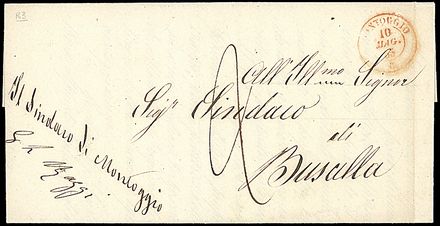 R3
MONTOGGIO
10
MAG.
All' Ill.mo Signor
Sig.r Sindaco
di
Busalla
2
Il Sindaco di Montoggio